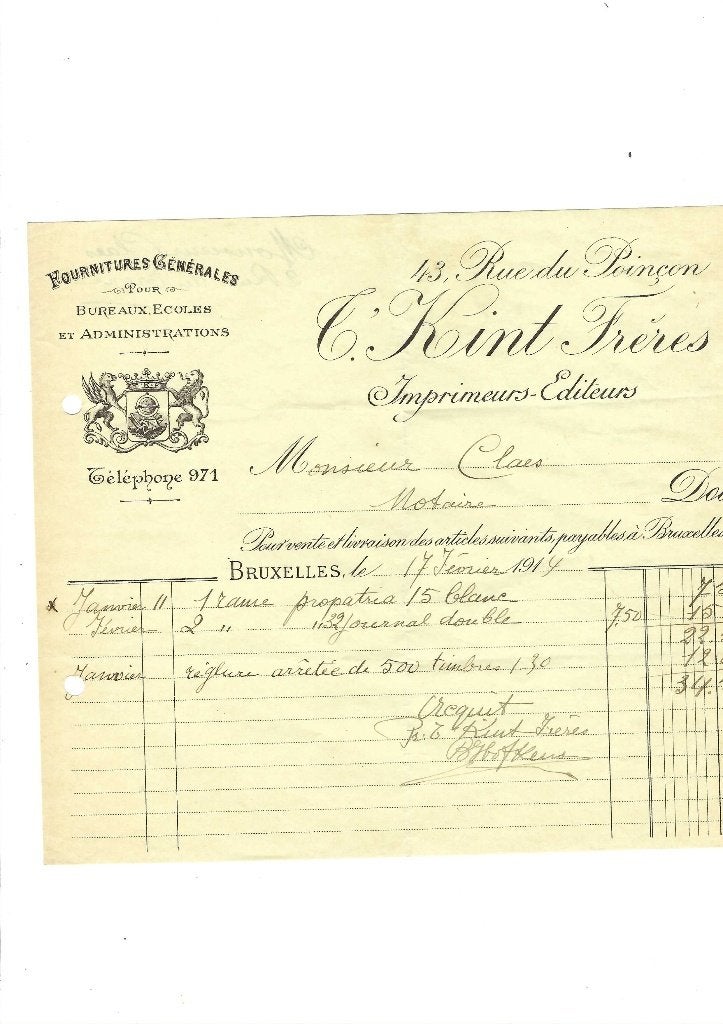 FOURNITURES GÉNÉRALES
POUR
BUREAUX, ECOLES
ET ADMINISTRATIONS
Téléphone 971
43, Rue du Poinçon
T'Kint Frères
Imprimeurs-Editeurs
Monsieur Claes
Notaire
Pour vente et livraison des articles suivants, payables à Bruxelles
BRUXELLES, le 17 Février 1914
Janvier 11 1 rame propatria 15 blanc 7
Février 2 " " 32 journal double 7,50 15
22
Janvier réglure arrêtée de 500 timbres 1.30 12
34
Acquit
Pr. T'Kint Frères